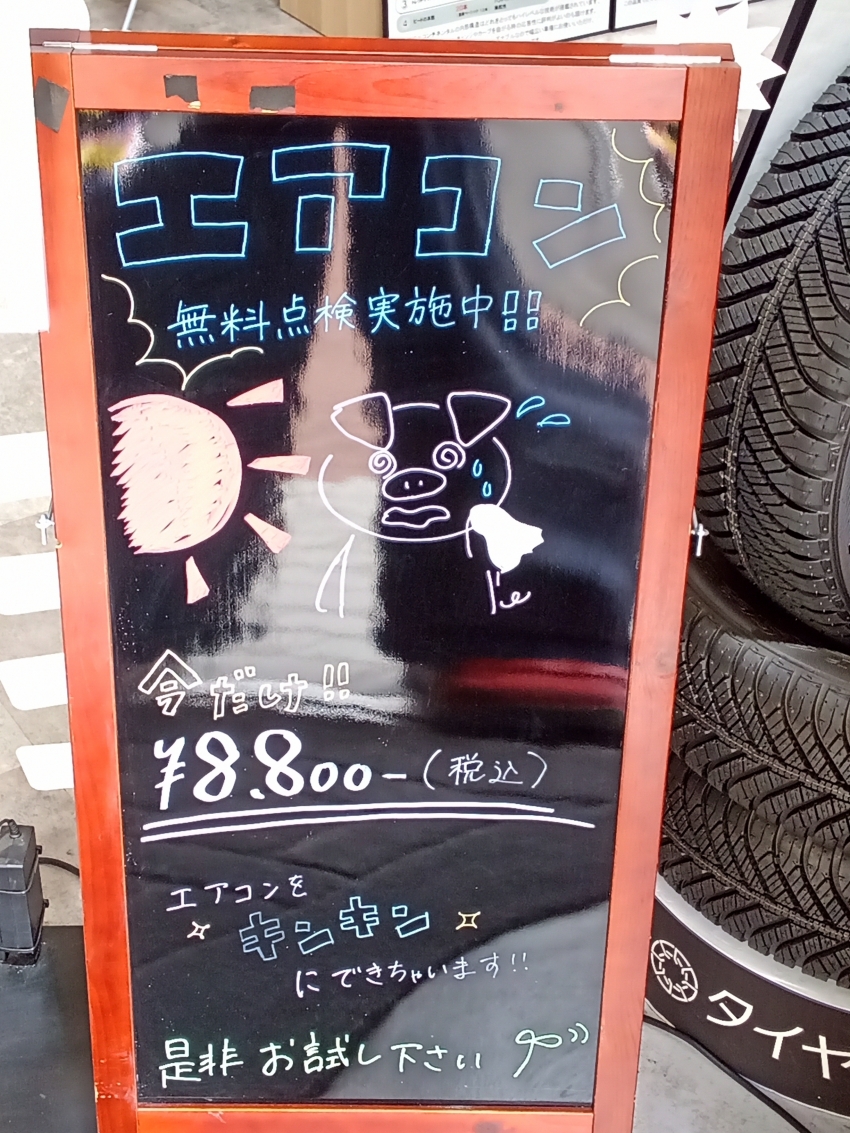 エアコン
無料点検実施中!!
今だけ!!
¥8.800-(税込)
エアコンを
キンキン
にできちゃいます!!
是非お試し下さい
タイヤ